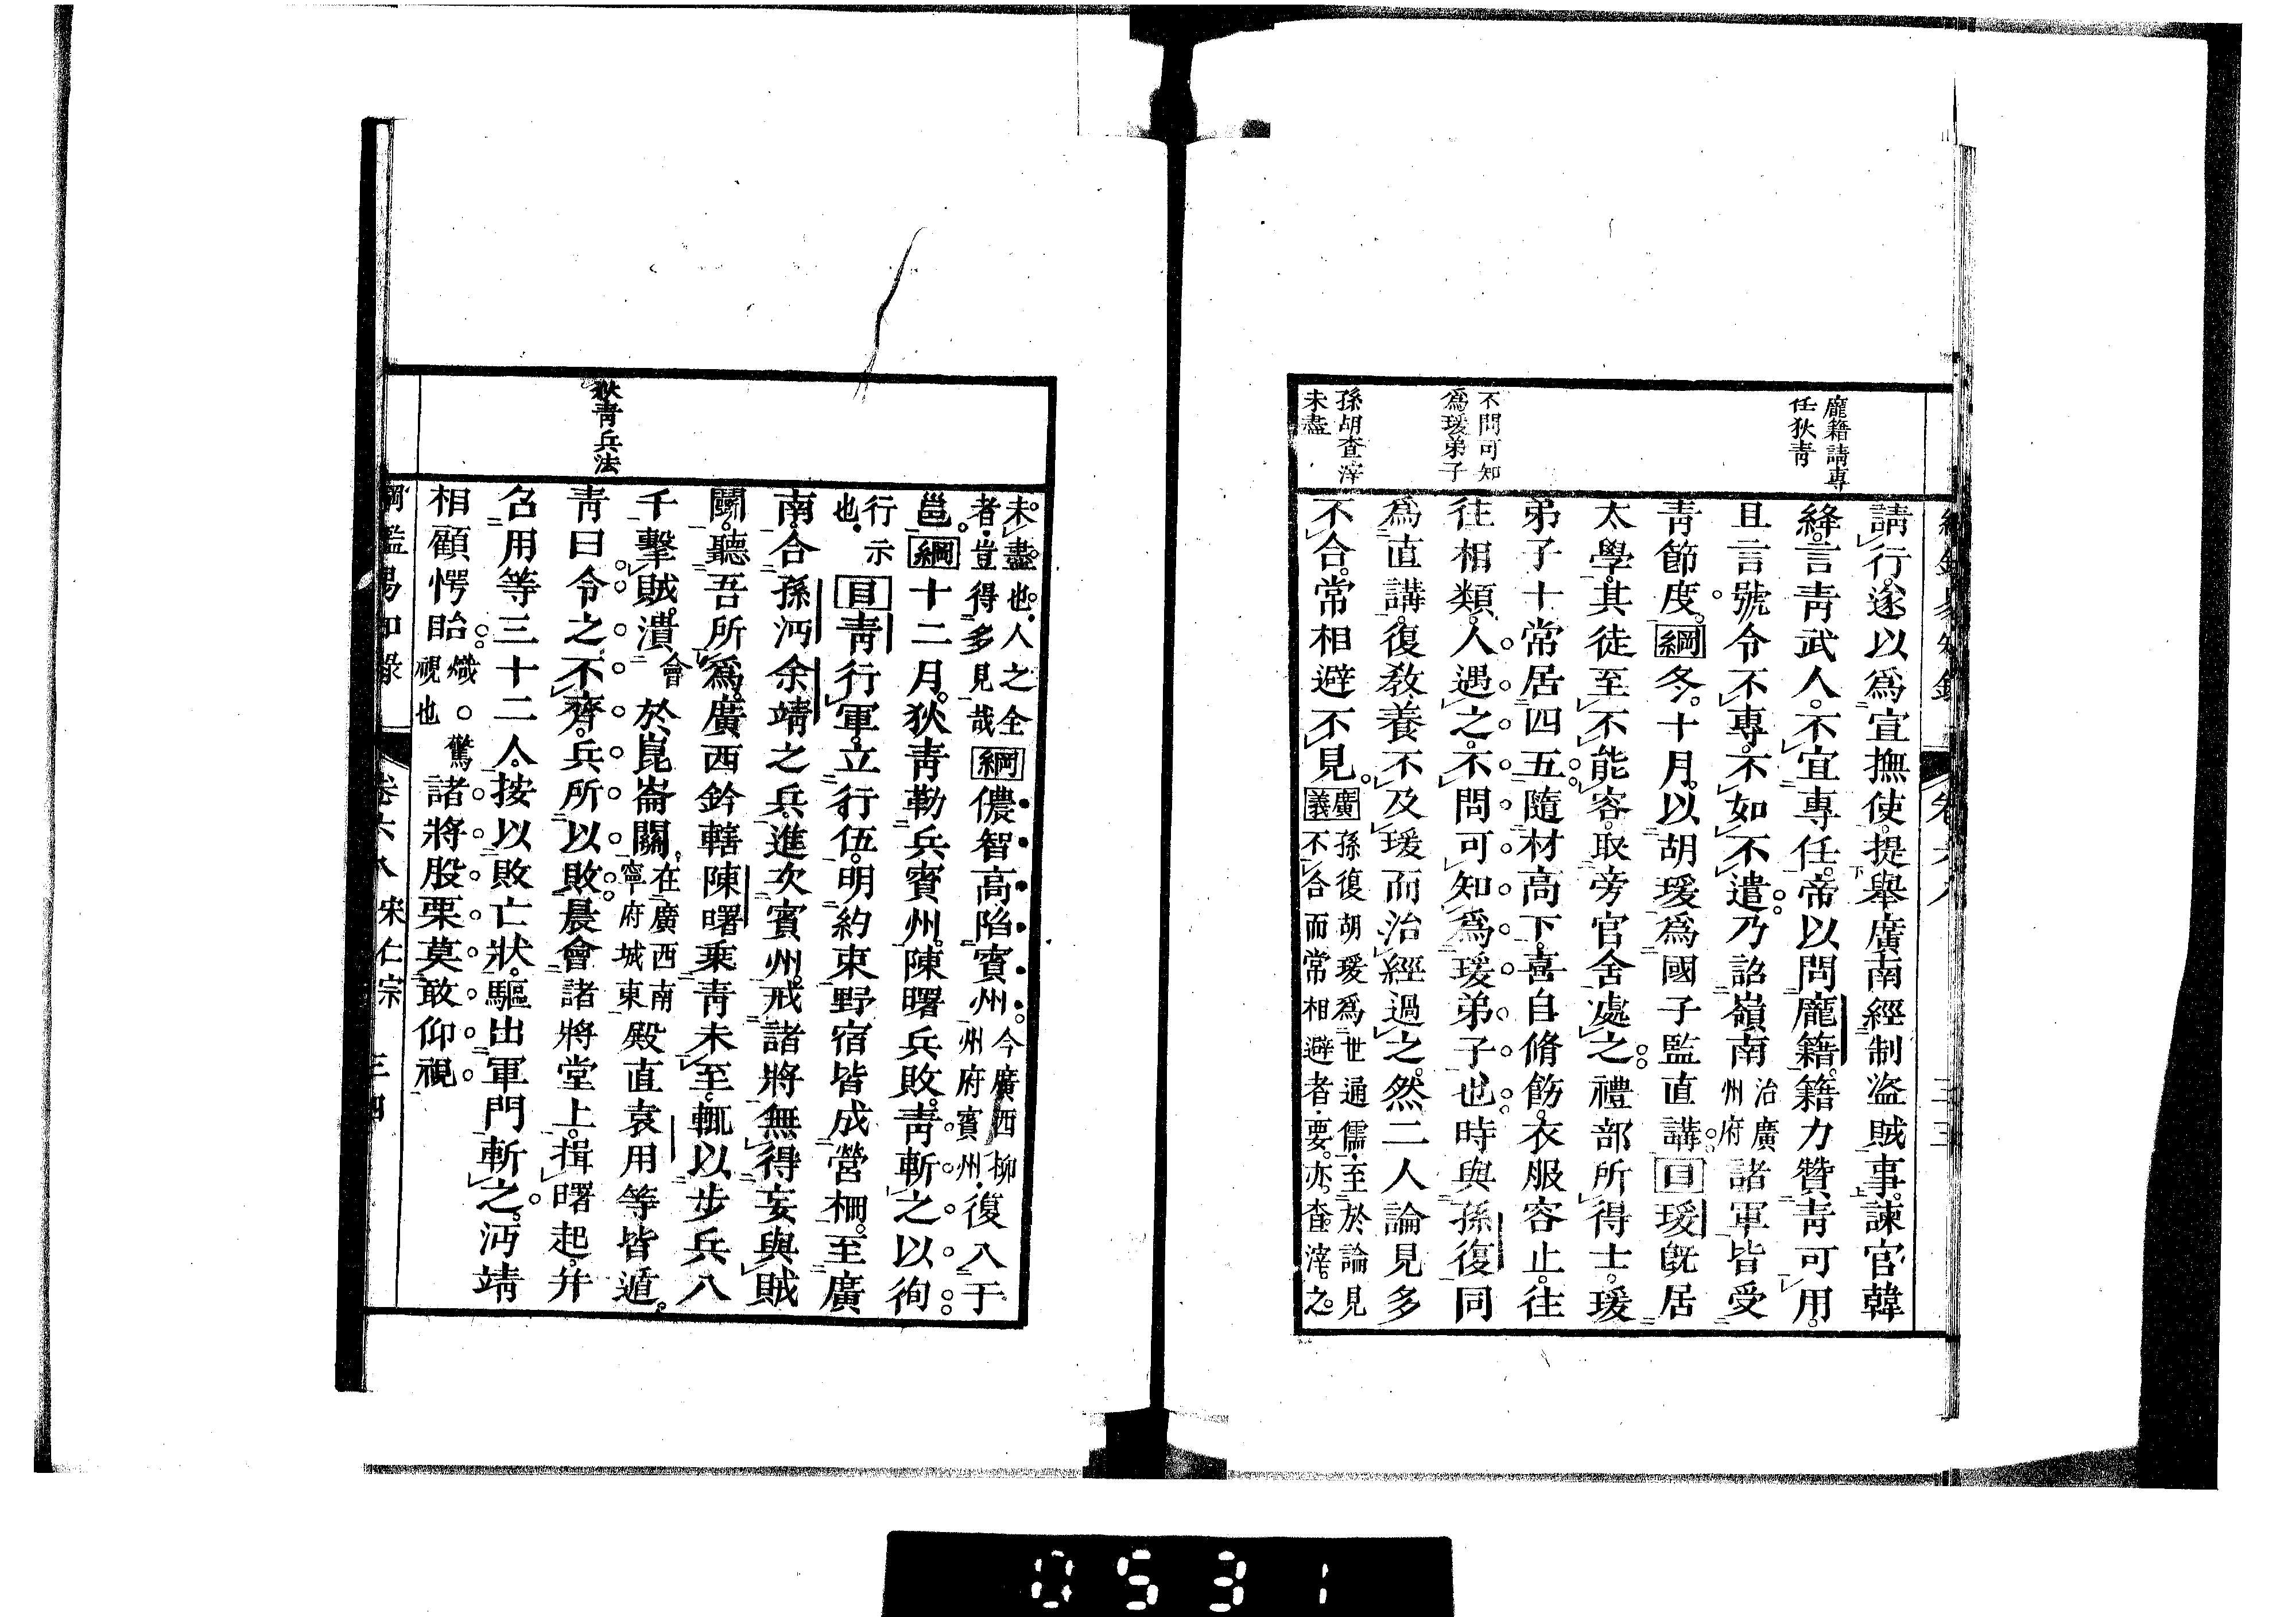 龐籍請專
任狄青
不問可知
爲瑗弟子
孫胡查滓
未盡
請行遂以爲宣撫使提舉廣南經制盗賊事諫官韓
絳言青武人不宜專任帝以問龐籍籍力贊青可用
且言號令不專不如不遣乃詔嶺南治廣州府諸軍皆受
青節度綱冬十月以胡瑗爲國子監直講目瑗旣居
太學其徒至不能容取旁官舍處之禮部所得士瑗
弟子十常居四五隨材高下喜自脩飭衣服容止往
往相類人遇之不問可知爲瑗弟子也時與孫復同
爲直講復敎養不及瑗而治經過之然二人論見多
不合常相避不見廣義孫復胡瑗爲世通儒至於論見
不合而常相避者要亦查滓之
狄青兵法
未盡也人之全
者豈得多見哉綱儂智高陷賓州今廣西柳
州府賓州復入于
邕綱十二月狄青勒兵賓州陳曙兵敗青斬之以徇
行示
也目青行軍立行伍明約束野宿皆成營柵至廣
南合孫沔余靖之兵進次賓州戒諸將無得妄與賊
鬭聽吾所爲廣西鈐轄陳曙乘青未至輒以步兵八
千擊賊潰會於崑崙關在廣西南
寧府城東殿直袁用等皆遁
青曰令之不齊兵所以敗晨會諸將堂上揖曙起并
召用等三十二人按以敗亡狀驅出軍門斬之沔靖
相顧愕眙熾○驚
視也諸將股栗莫敢仰視
綱鑑易知錄
卷六八 宋仁宗
三四
0531